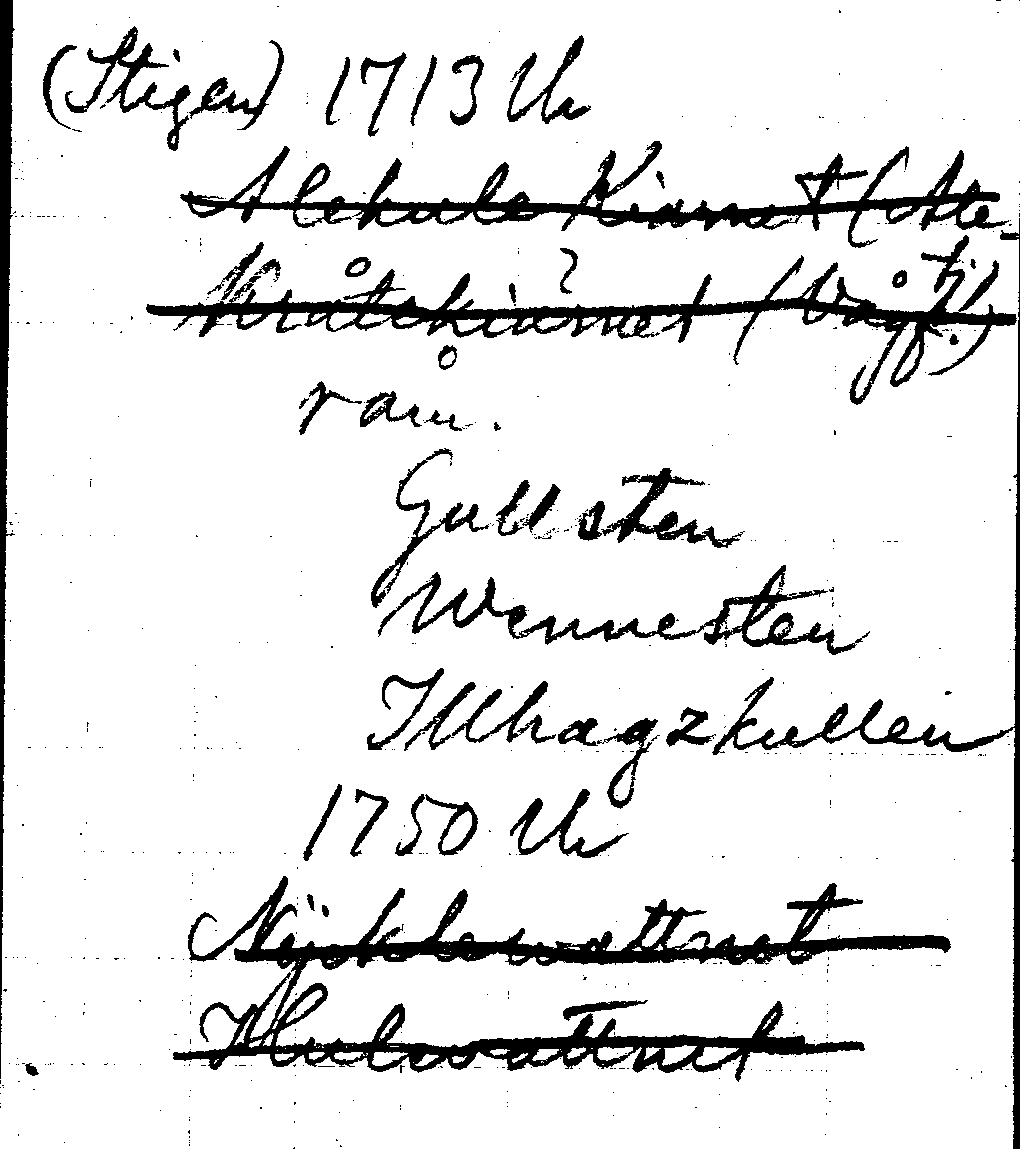 (Stigen) 1713 Uh
Alekule Kiarnet (Ale-
Kråtekiärnet (Vågf.tj.)
råm.
Gullsten
Wennesten
Illhagzkullen
1750 Uh
Nÿcklewattnet
Hulewattnet